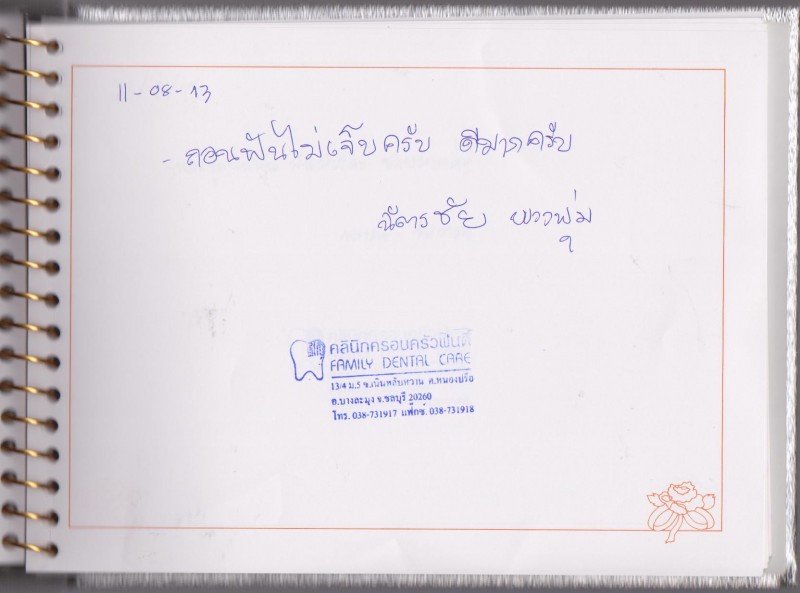 11-08-13
- ถอนฟันไม่เจ็บครับ ดีมากครับ
ฉัตรชัย พวงพุ่ม
คลินิกครอบครัวฟันดี
FAMILY DENTAL CARE
13/4 ม.5 ซ.เนินพลับหวาน ต.หนองปรือ
อ.บางละมุง จ.ชลบุรี 20260
โทร. 038-731917 แฟ็กซ์. 038-731918